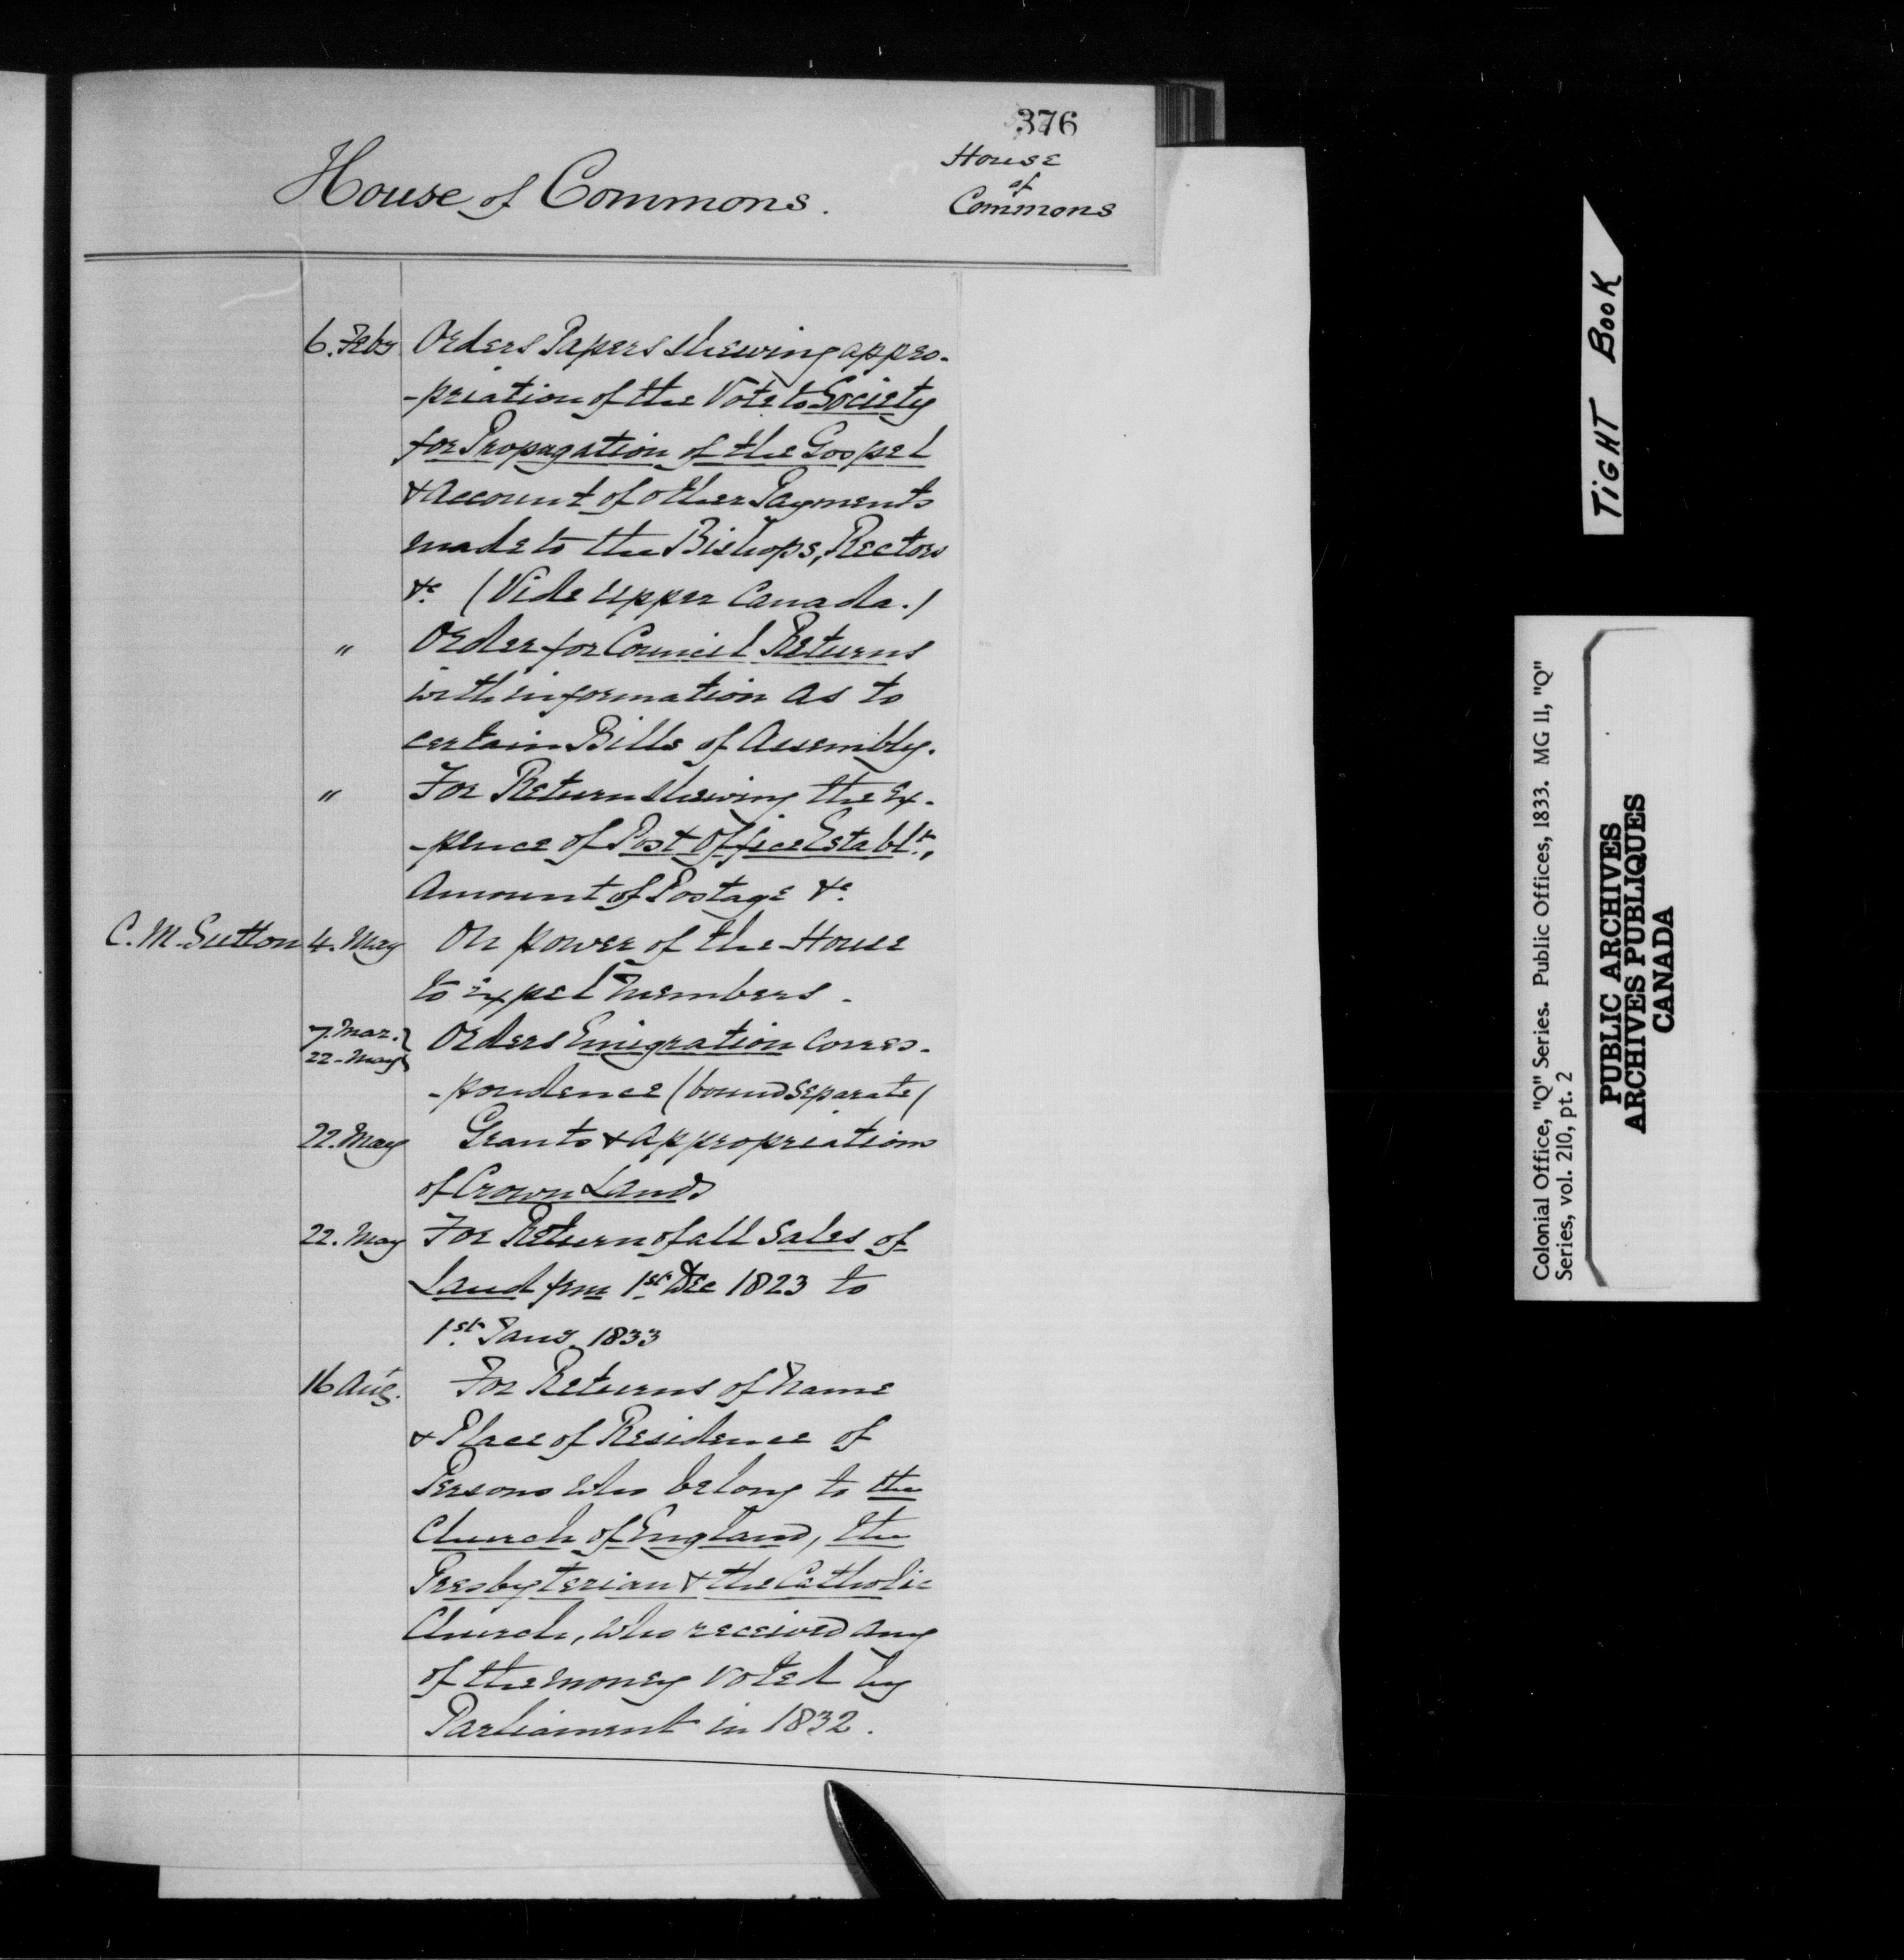 376
House
of
Commons
House of Commons.
6. Feby Orders Papers shewing appro-
-priation of the Vote to Society
for Propagation of the Gospel
& Account of other Payments
made to the Bishops, Rectors
&c. (Vide Upper Canada.)
" Order for Council Returns
with information as to
certain Bills of Assembly.
" For Return shewing the Ex-
-pence of Post Office Establt.,
Amount of Postage &c.
C. M. Sutton 4. May On power of the House
to expel Members.
7. Mar. } Orders Emigration Corres-
22. May }
-pondence (bound separate)
22. May Grants & Appropriations
of Crown Lands
22. May For Return of all Sales of
Land frm 1st. Dec 1823 to
1st. Jany. 1833
16 Aug. For Returns of Name
& Place of Residence of
Persons who belong to the
Church of England, the
Presbyterian & the Catholic
Church, who received any
of the money voted by
Parliament in 1832.
TIGHT BOOK
Colonial Office, "Q" Series. Public Offices, 1833. MG 11, "Q"
Series, vol. 210, pt. 2
PUBLIC ARCHIVES
ARCHIVES PUBLIQUES
CANADA